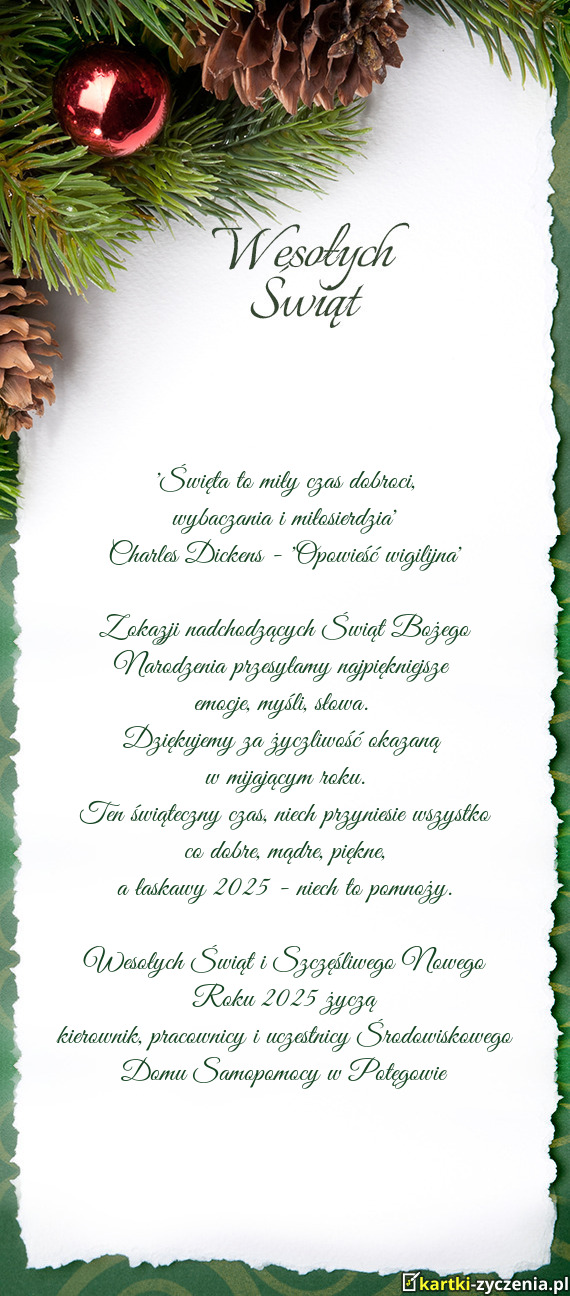 Wesołych
Świąt
'Święta to miły czas dobroci,
wybaczania i miłosierdzia'
Charles Dickens - 'Opowieść wigilijna'
Zokazji nadchodzących Świąt Bożego
Narodzenia przesyłamy najpiękniejsze
emocje, myśli, słowa.
Dziękujemy za życzliwość okazaną
w mijającym roku.
Ten świąteczny czas, niech przyniesie wszystko
co dobre, mądre, piękne,
a łaskawy 2025 - niech to pomnoży.
Wesołych Świąt i Szczęśliwego Nowego
Roku 2025 życzą
kierownik, pracownicy i uczestnicy Środowiskowego
Domu Samopomocy w Potęgowie
kartki-zyczenia.pl